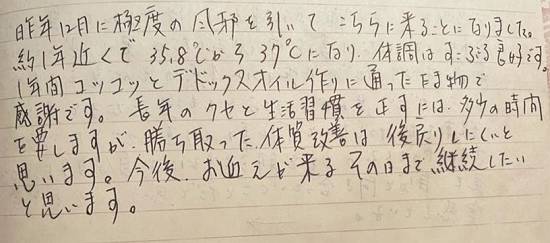 昨年12月に極度の風邪を引いてこちらに来ることになりました。
約1年近くで35.8℃から37℃になり、体調はすこぶる良好です。
1年間コツコツとデトックスオイル作りに通った賜物で
感謝です。長年のクセと生活習慣を正すには、多少の時間
を要しますが、勝ち取った体質改善は後戻りしにくいと
思います。今後、お迎えが来るその日まで継続したい
と思います。